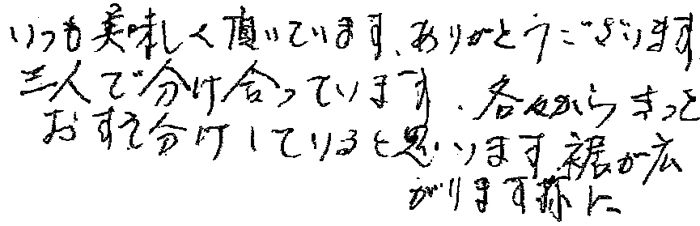 いつも美味しく頂いています、ありがとうございます
三人で分け合っています、各々からきっと
おすそ分けしていると思います、裾が広
がります様に